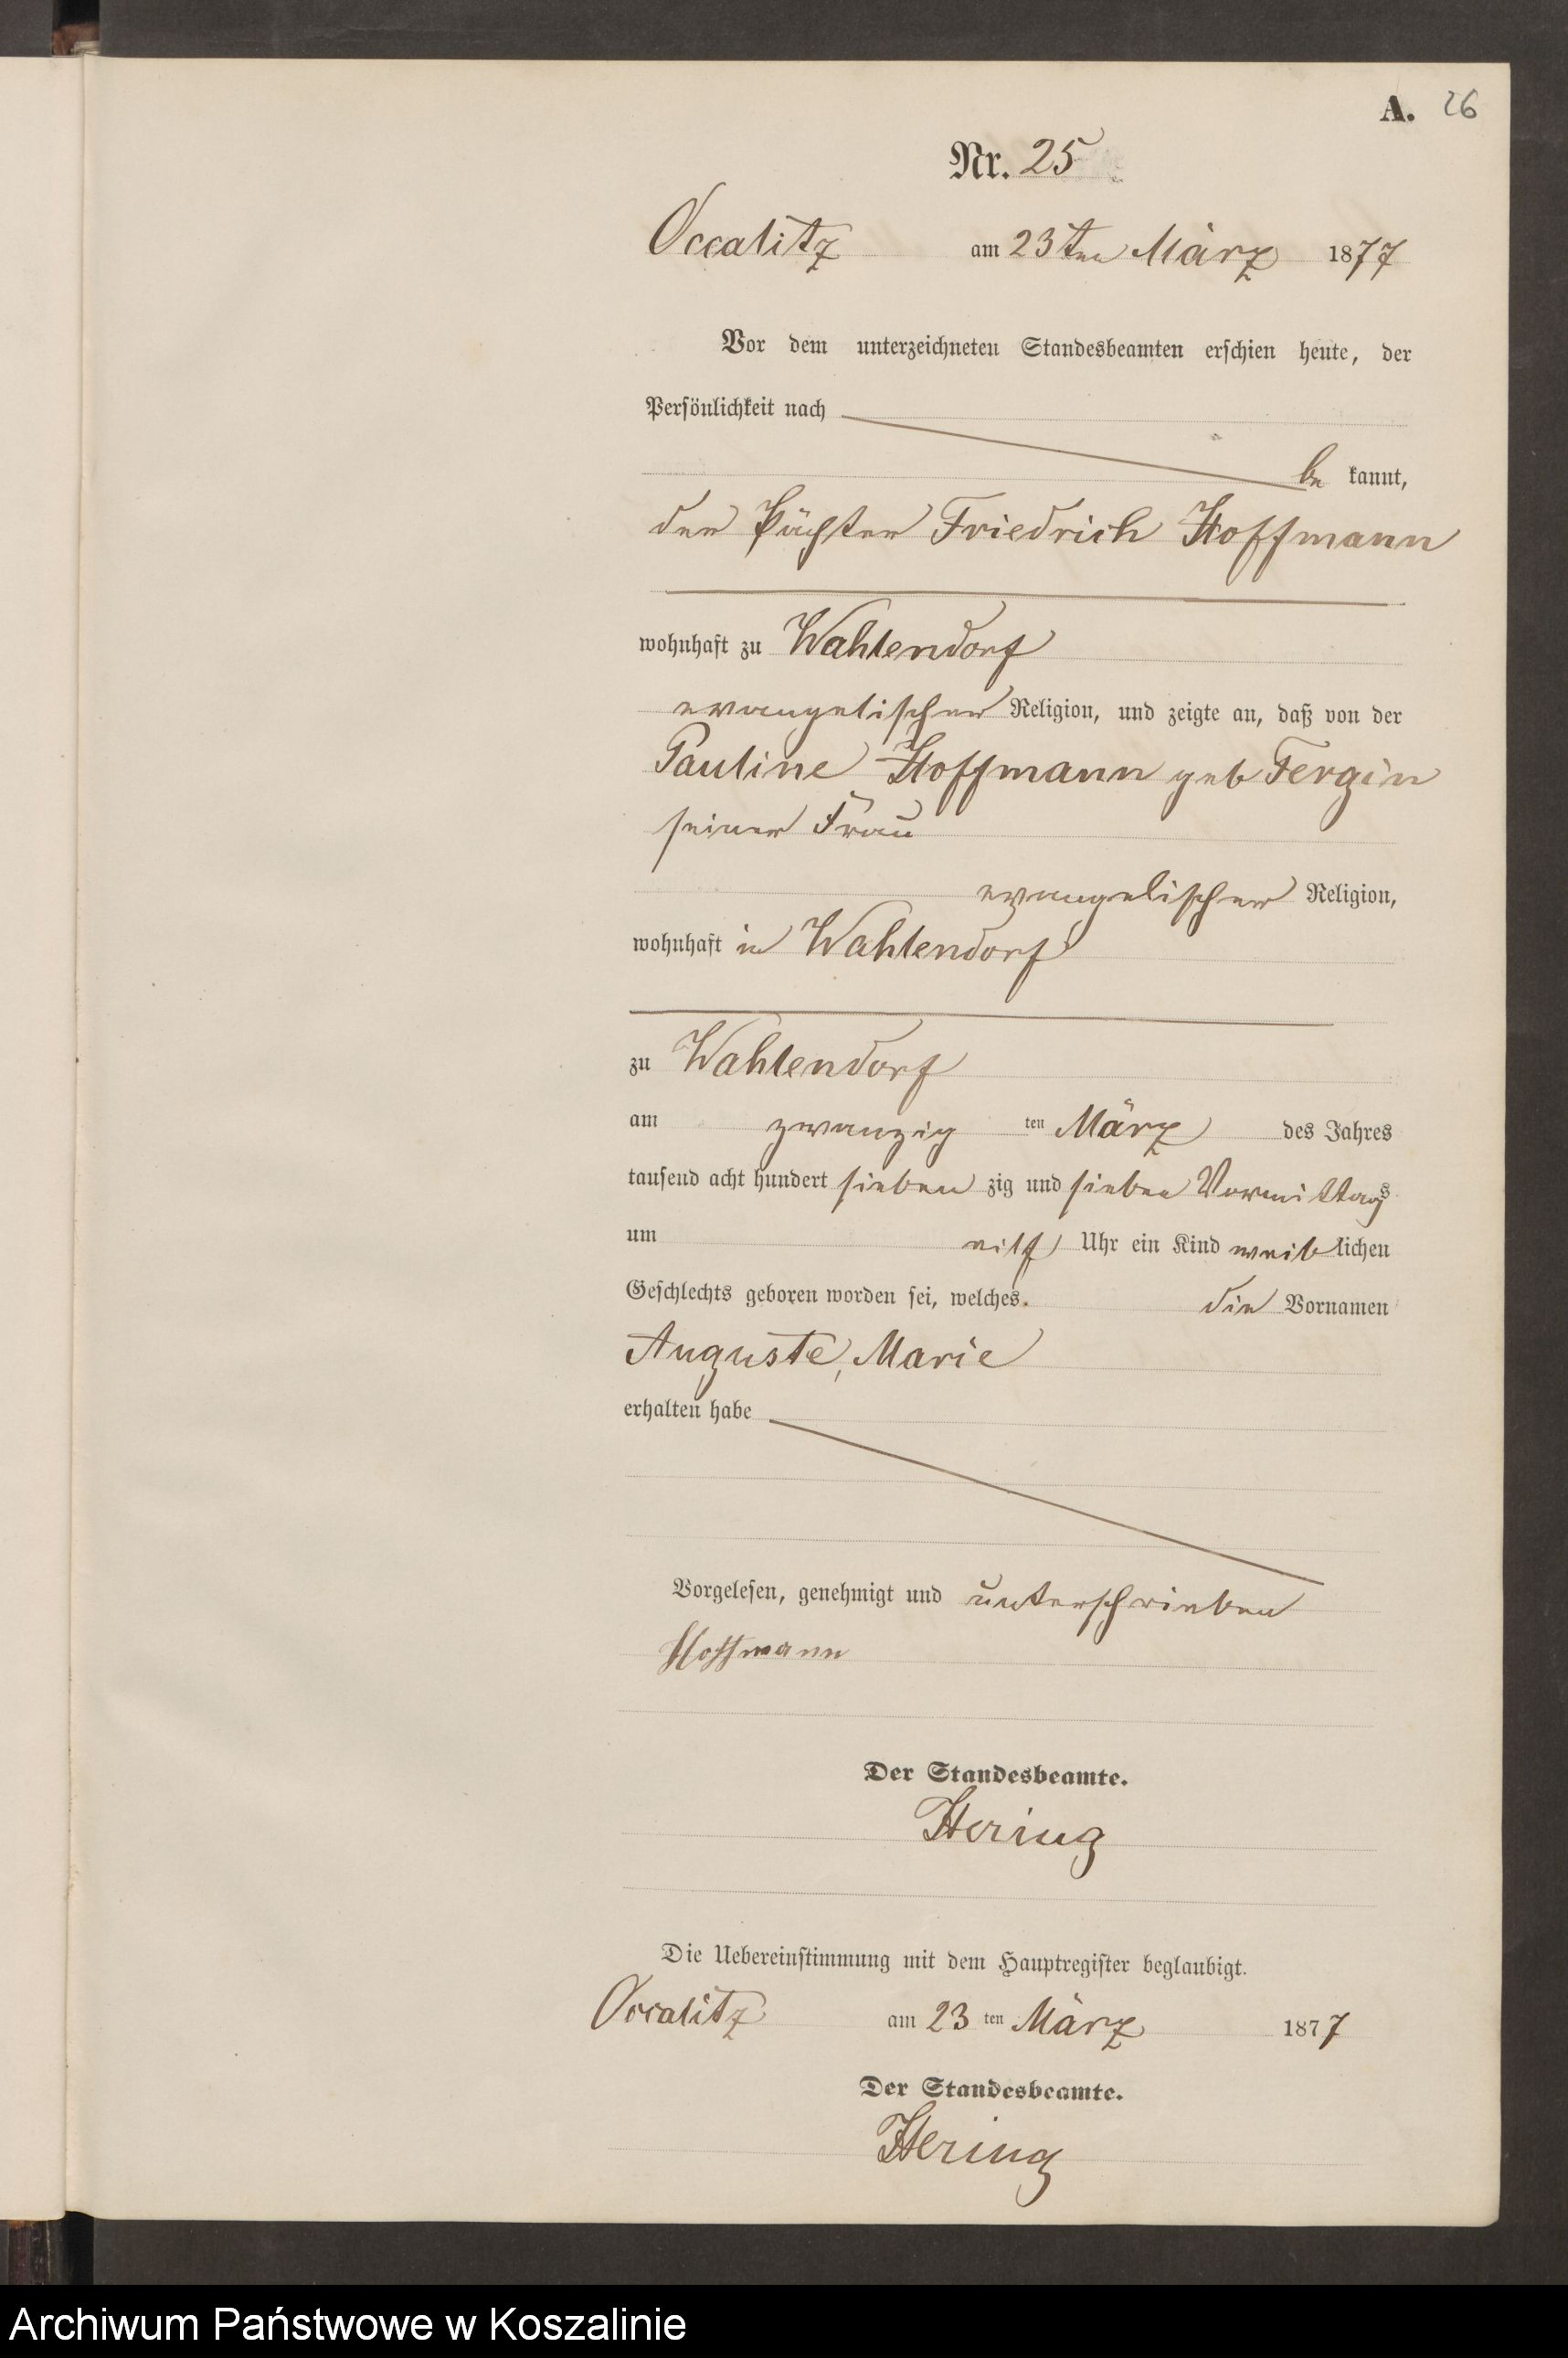 A. 26
Nr. 25
Occalitz am 23ten März 1877
Vor dem unterzeichneten Standesbeamten erschien heute, der
Persönlichkeit nach
be kannt,
der Pächter Friedrich Hoffmann
wohnhaft zu Wahlendorf
evangelischer Religion, und zeigte an, daß von der
Pauline Hoffmann geb Fergin
seiner Frau
evangelischer Religion,
wohnhaft in Wahlendorf
zu Wahlendorf
am zwanzig ten März des Jahres
tausend acht hundert sieben zig und sieben Vormittags
um eilf Uhr ein Kind weib lichen
Geschlechts geboren worden sei, welches die Vornamen
Auguste, Marie
erhalten habe
Vorgelesen, genehmigt und unterschrieben
Hoffmann
Der Standesbeamte.
Hering
Die Uebereinstimmung mit dem Hauptregister beglaubigt.
Occalitz am 23 ten März 1877
Der Standesbeamte.
Hering
Archiwum Państwowe w Koszalinie